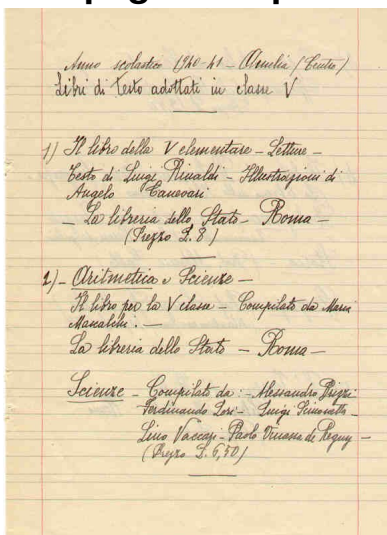 Anno scolastico 1940-41 - Amelia (Centro)
Libri di testo adottati in classe V
1) Il libro della V elementare - Letture -
Testo di Luigi Rinaldi - Illustrazioni di
Angelo Canevari
- La libreria dello Stato - Roma -
(Prezzo £. 8)
2) - Aritmetica e Scienze -
Il libro per la V classe - Compilato da Maria
Mascalchi. -
La libreria dello Stato - Roma -
Scienze - Compilato da: - Alessandro
Ferdinando Lori - Luigi Simonetti -
Lino Vaccari - Paolo Vinassa de Regny -
(Prezzo £. 6,50)